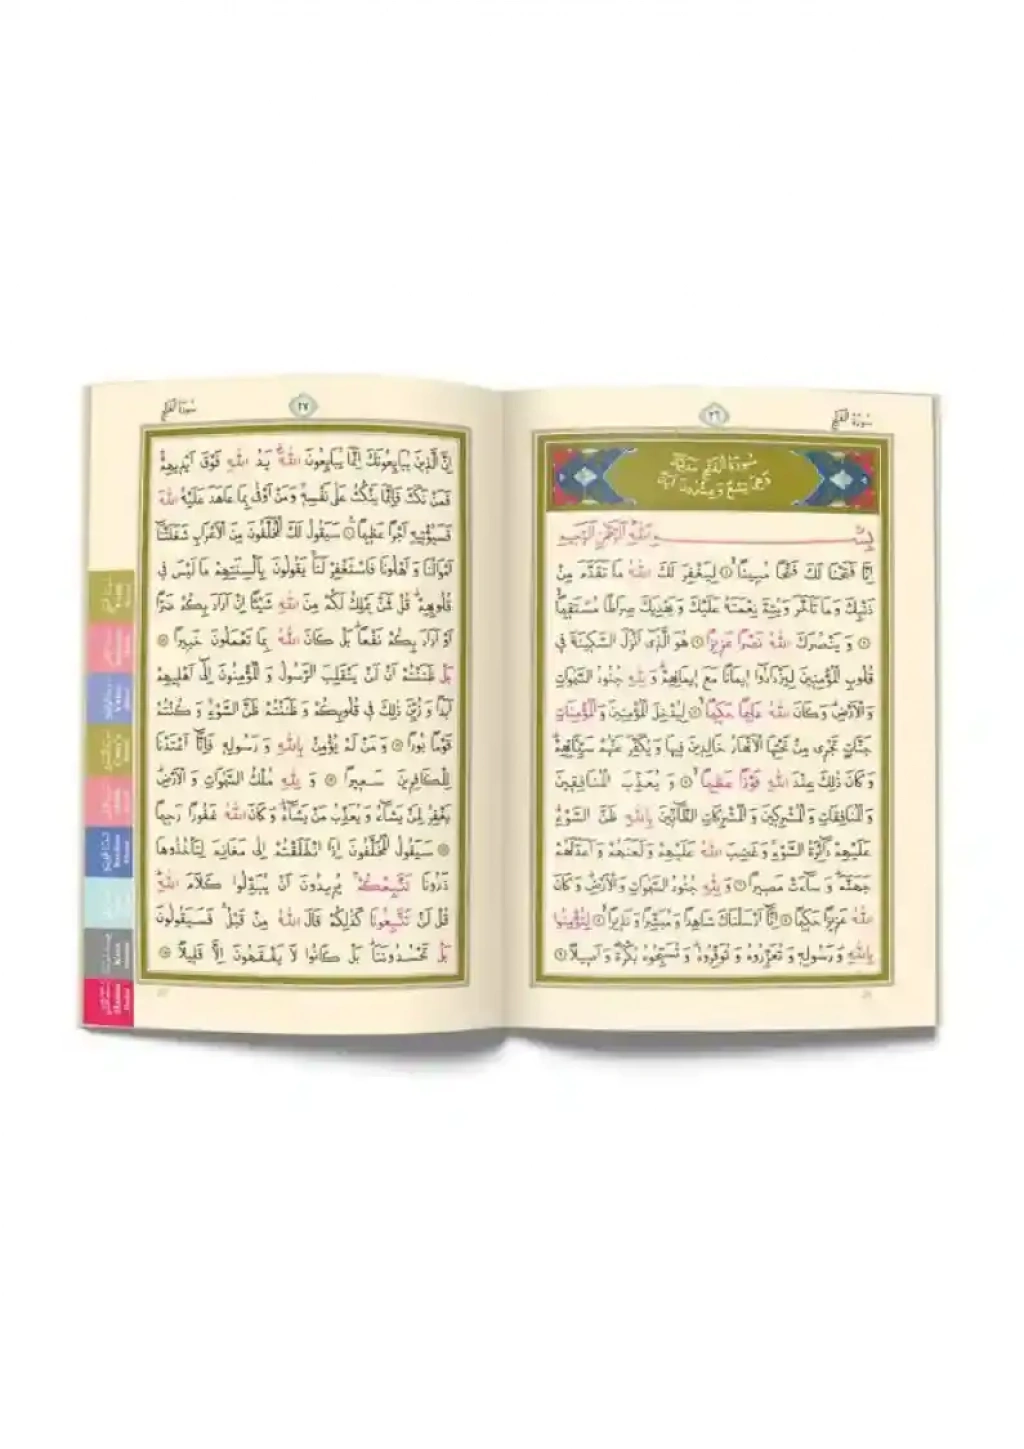 سُورَةُ الْفَتْحِ
٢٦
سُورَةُ الْفَتْحِ مَدَنِيَّةٌ
وَهِيَ تِسْعٌ وَعِشْرُونَ اٰيَةً
بِسْمِ اللّٰهِ الرَّحْمٰنِ الرَّحٖيمِ
اِنَّا فَتَحْنَا لَكَ فَتْحًا مُبٖينًا ۝١ لِيَغْفِرَ لَكَ اللّٰهُ مَا تَقَدَّمَ مِنْ
ذَنْبِكَ وَمَا تَاَخَّرَ وَيُتِمَّ نِعْمَتَهُ عَلَيْكَ وَيَهْدِيَكَ صِرَاطًا مُسْتَقٖيمًا
۝٢ وَيَنْصُرَكَ اللّٰهُ نَصْرًا عَزٖيزًا ۝٣ هُوَ الَّذٖى اَنْزَلَ السَّكٖينَةَ فٖى
قُلُوبِ الْمُؤْمِنٖينَ لِيَزْدَادُٓوا اٖيمَانًا مَعَ اٖيمَانِهِمْ وَلِلّٰهِ جُنُودُ السَّمٰوَاتِ
وَالْاَرْضِ وَكَانَ اللّٰهُ عَلٖيمًا حَكٖيمًا ۝٤ لِيُدْخِلَ الْمُؤْمِنٖينَ وَالْمُؤْمِنَاتِ
جَنَّاتٍ تَجْرٖى مِنْ تَحْتِهَا الْاَنْهَارُ خَالِدٖينَ فٖيهَا وَيُكَفِّرَ عَنْهُمْ سَيِّـَٔاتِهِمْ
وَكَانَ ذٰلِكَ عِنْدَ اللّٰهِ فَوْزًا عَظٖيمًا ۝٥ وَيُعَذِّبَ الْمُنَافِقٖينَ
وَالْمُنَافِقَاتِ وَالْمُشْرِكٖينَ وَالْمُشْرِكَاتِ الظَّٓانّٖينَ بِاللّٰهِ ظَنَّ السَّوْءِ
عَلَيْهِمْ دَٓائِرَةُ السَّوْءِ وَغَضِبَ اللّٰهُ عَلَيْهِمْ وَلَعَنَهُمْ وَاَعَدَّ لَهُمْ
جَهَنَّمَ وَسَٓاءَتْ مَصٖيرًا ۝٦ وَلِلّٰهِ جُنُودُ السَّمٰوَاتِ وَالْاَرْضِ وَكَانَ
اللّٰهُ عَزٖيزًا حَكٖيمًا ۝٧ اِنَّٓا اَرْسَلْنَاكَ شَاهِدًا وَمُبَشِّرًا وَنَذٖيرًا ۝٨ لِتُؤْمِنُوا
بِاللّٰهِ وَرَسُولِهٖ وَتُعَزِّرُوهُ وَتُوَقِّرُوهُ وَتُسَبِّحُوهُ بُكْرَةً وَاَصٖيلًا ۝٩
26
سُورَةُ الْفَتْحِ
٢٧
اِنَّ الَّذٖينَ يُبَايِعُونَكَ اِنَّمَا يُبَايِعُونَ اللّٰهَ يَدُ اللّٰهِ فَوْقَ اَيْدٖيهِمْ
فَمَنْ نَكَثَ فَاِنَّمَا يَنْكُثُ عَلٰى نَفْسِهٖ وَمَنْ اَوْفٰى بِمَا عَاهَدَ عَلَيْهُ اللّٰهَ
فَسَيُؤْتٖيهِ اَجْرًا عَظٖيمًا ۝١٠ سَيَقُولُ لَكَ الْمُخَلَّفُونَ مِنَ الْاَعْرَابِ شَغَلَتْنَٓا
اَمْوَالُنَا وَاَهْلُونَا فَاسْتَغْفِرْ لَنَا يَقُولُونَ بِاَلْسِنَتِهِمْ مَا لَيْسَ فٖى
قُلُوبِهِمْ قُلْ فَمَنْ يَمْلِكُ لَكُمْ مِنَ اللّٰهِ شَيْـًٔا اِنْ اَرَادَ بِكُمْ ضَرًّا
اَوْ اَرَادَ بِكُمْ نَفْعًا بَلْ كَانَ اللّٰهُ بِمَا تَعْمَلُونَ خَبٖيرًا ۝١١
بَلْ ظَنَنْتُمْ اَنْ لَنْ يَنْقَلِبَ الرَّسُولُ وَالْمُؤْمِنُونَ اِلٰٓى اَهْلٖيهِمْ
اَبَدًا وَزُيِّنَ ذٰلِكَ فٖى قُلُوبِكُمْ وَظَنَنْتُمْ ظَنَّ السَّوْءِ وَكُنْتُمْ
قَوْمًا بُورًا ۝١٢ وَمَنْ لَمْ يُؤْمِنْ بِاللّٰهِ وَرَسُولِهٖ فَاِنَّٓا اَعْتَدْنَا
لِلْكَافِرٖينَ سَعٖيرًا ۝١٣ وَلِلّٰهِ مُلْكُ السَّمٰوَاتِ وَالْاَرْضِ
يَغْفِرُ لِمَنْ يَشَٓاءُ وَيُعَذِّبُ مَنْ يَشَٓاءُ وَكَانَ اللّٰهُ غَفُورًا رَحٖيمًا
۝١٤ سَيَقُولُ الْمُخَلَّفُونَ اِذَا انْطَلَقْتُمْ اِلٰى مَغَانِمَ لِتَأْخُذُوهَا
ذَرُونَا نَتَّبِعْكُمْ يُرٖيدُونَ اَنْ يُبَدِّلُوا كَلَامَ اللّٰهِ
قُلْ لَنْ تَتَّبِعُونَا كَذٰلِكُمْ قَالَ اللّٰهُ مِنْ قَبْلُ فَسَيَقُولُونَ
بَلْ تَحْسُدُونَنَا بَلْ كَانُوا لَا يَفْقَهُونَ اِلَّا قَلٖيلًا ۝١٥
27